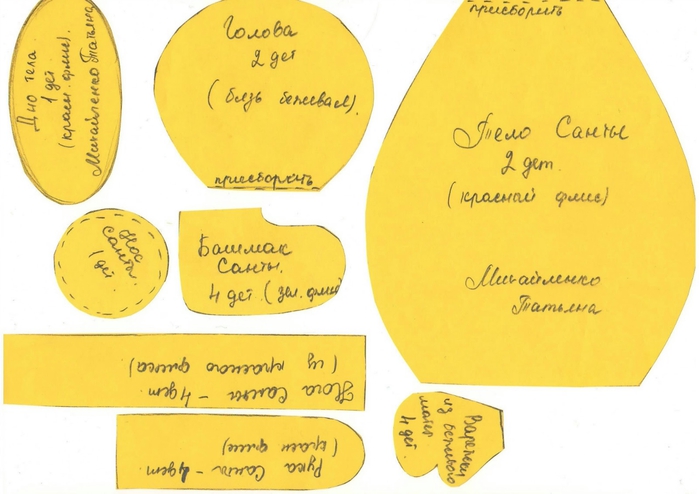 Дно тела
1 дет.
(красн. флис).
Михайленко Татьяна
Голова
2 дет
(бязь бежевая).
присборить
присборить
Тело Санты
2 дет.
(красный флис)
Михайленко
Татьяна
Нос
Санты.
1 дет.
Башмак
Санты.
4 дет. (зел. флис
Нога Санты - 4 дет.
(из красного флиса)
Рука Санты - 4 дет.
(красн флис)
Варежки
из бежевого
матер.
4 дет.